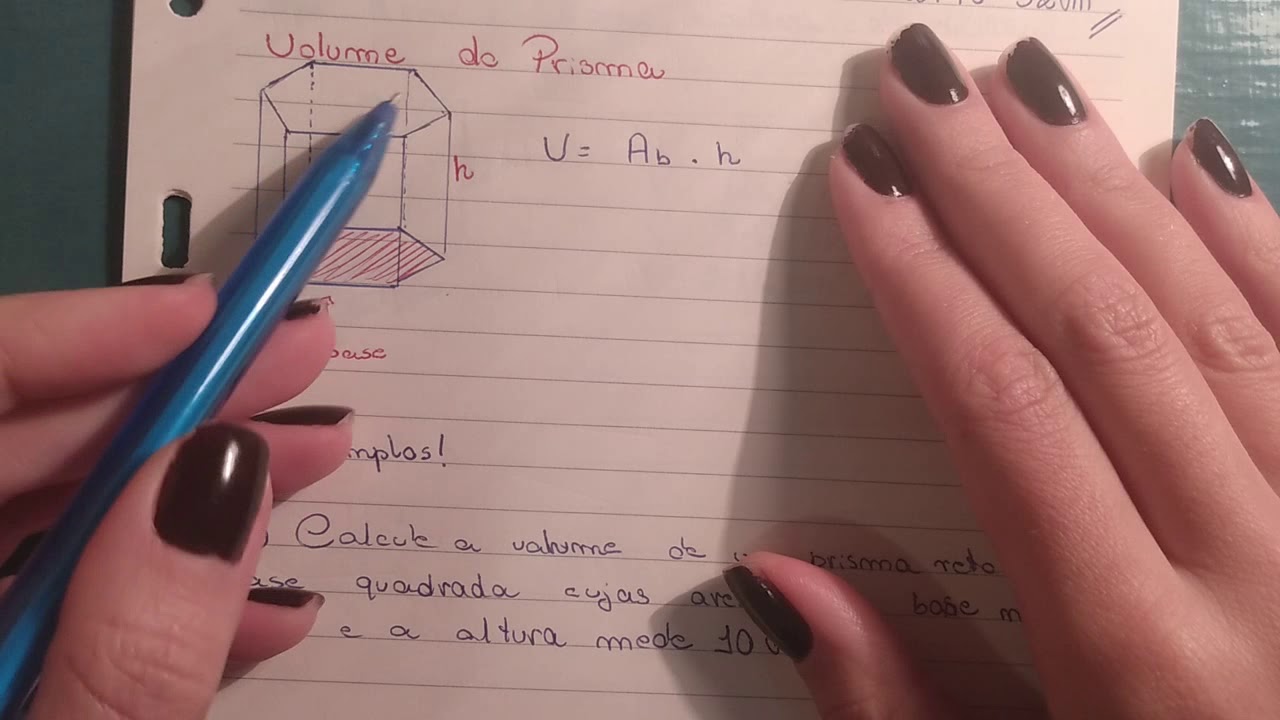 Volume do Prisma
V = Ab . h
h
base
mplos!
Calcule a volume de prisma reto
ase quadrada cujas are base m
e a altura mede 10